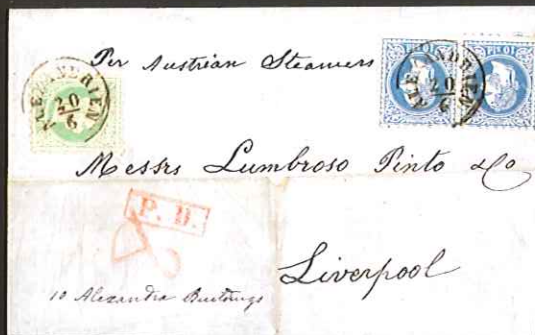 Per Austrian Steamers
ALEXANDRIEN
20
6
ALEXANDRIEN
20
6
Messrs Lumbroso Pinto & Co
P. D.
Liverpool
10 Alexandra